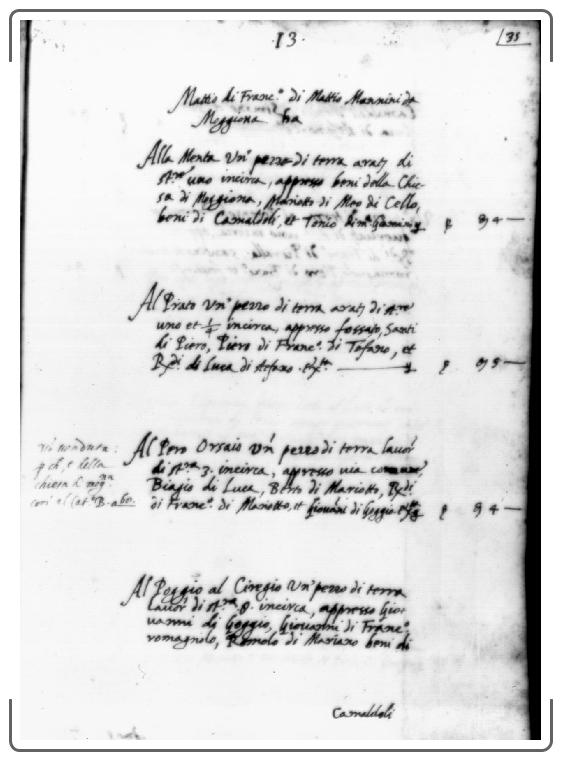 13.
35
Mattio di Franc.º di Mattio Mannini da
Moggiona ha
Alla Menta Un.º pezzo di terra arat.
di st.re uno incirca, appresso beni della Chie-
sa di Moggiona, Mariotto di Meo di Cello,
beni di Camaldoli, et Tonio di
Al Prato Un.º pezzo di terra arat. di st.re
uno et 1/4 incirca, appresso fossato, Santi
di Piero, Piero di Franc.º di Tofano, et
di Luca di
Al Pero Orsaio Un pezzo di terra lavor.
di st.ra 3. incirca, appresso via comune,
Biagio di Luca, Berto di Mariotto,
di Franc.º di Mariotto, et Giovani di Goggio
della
chiesa
Al Poggio al Ciregio Un.º pezzo di terra
lavor. di st.ra 8. incirca, appresso Gio-
vanni di Goggio, Giovanni di Franc.º
romagnolo, Romolo di Mariano beni di
Camaldoli